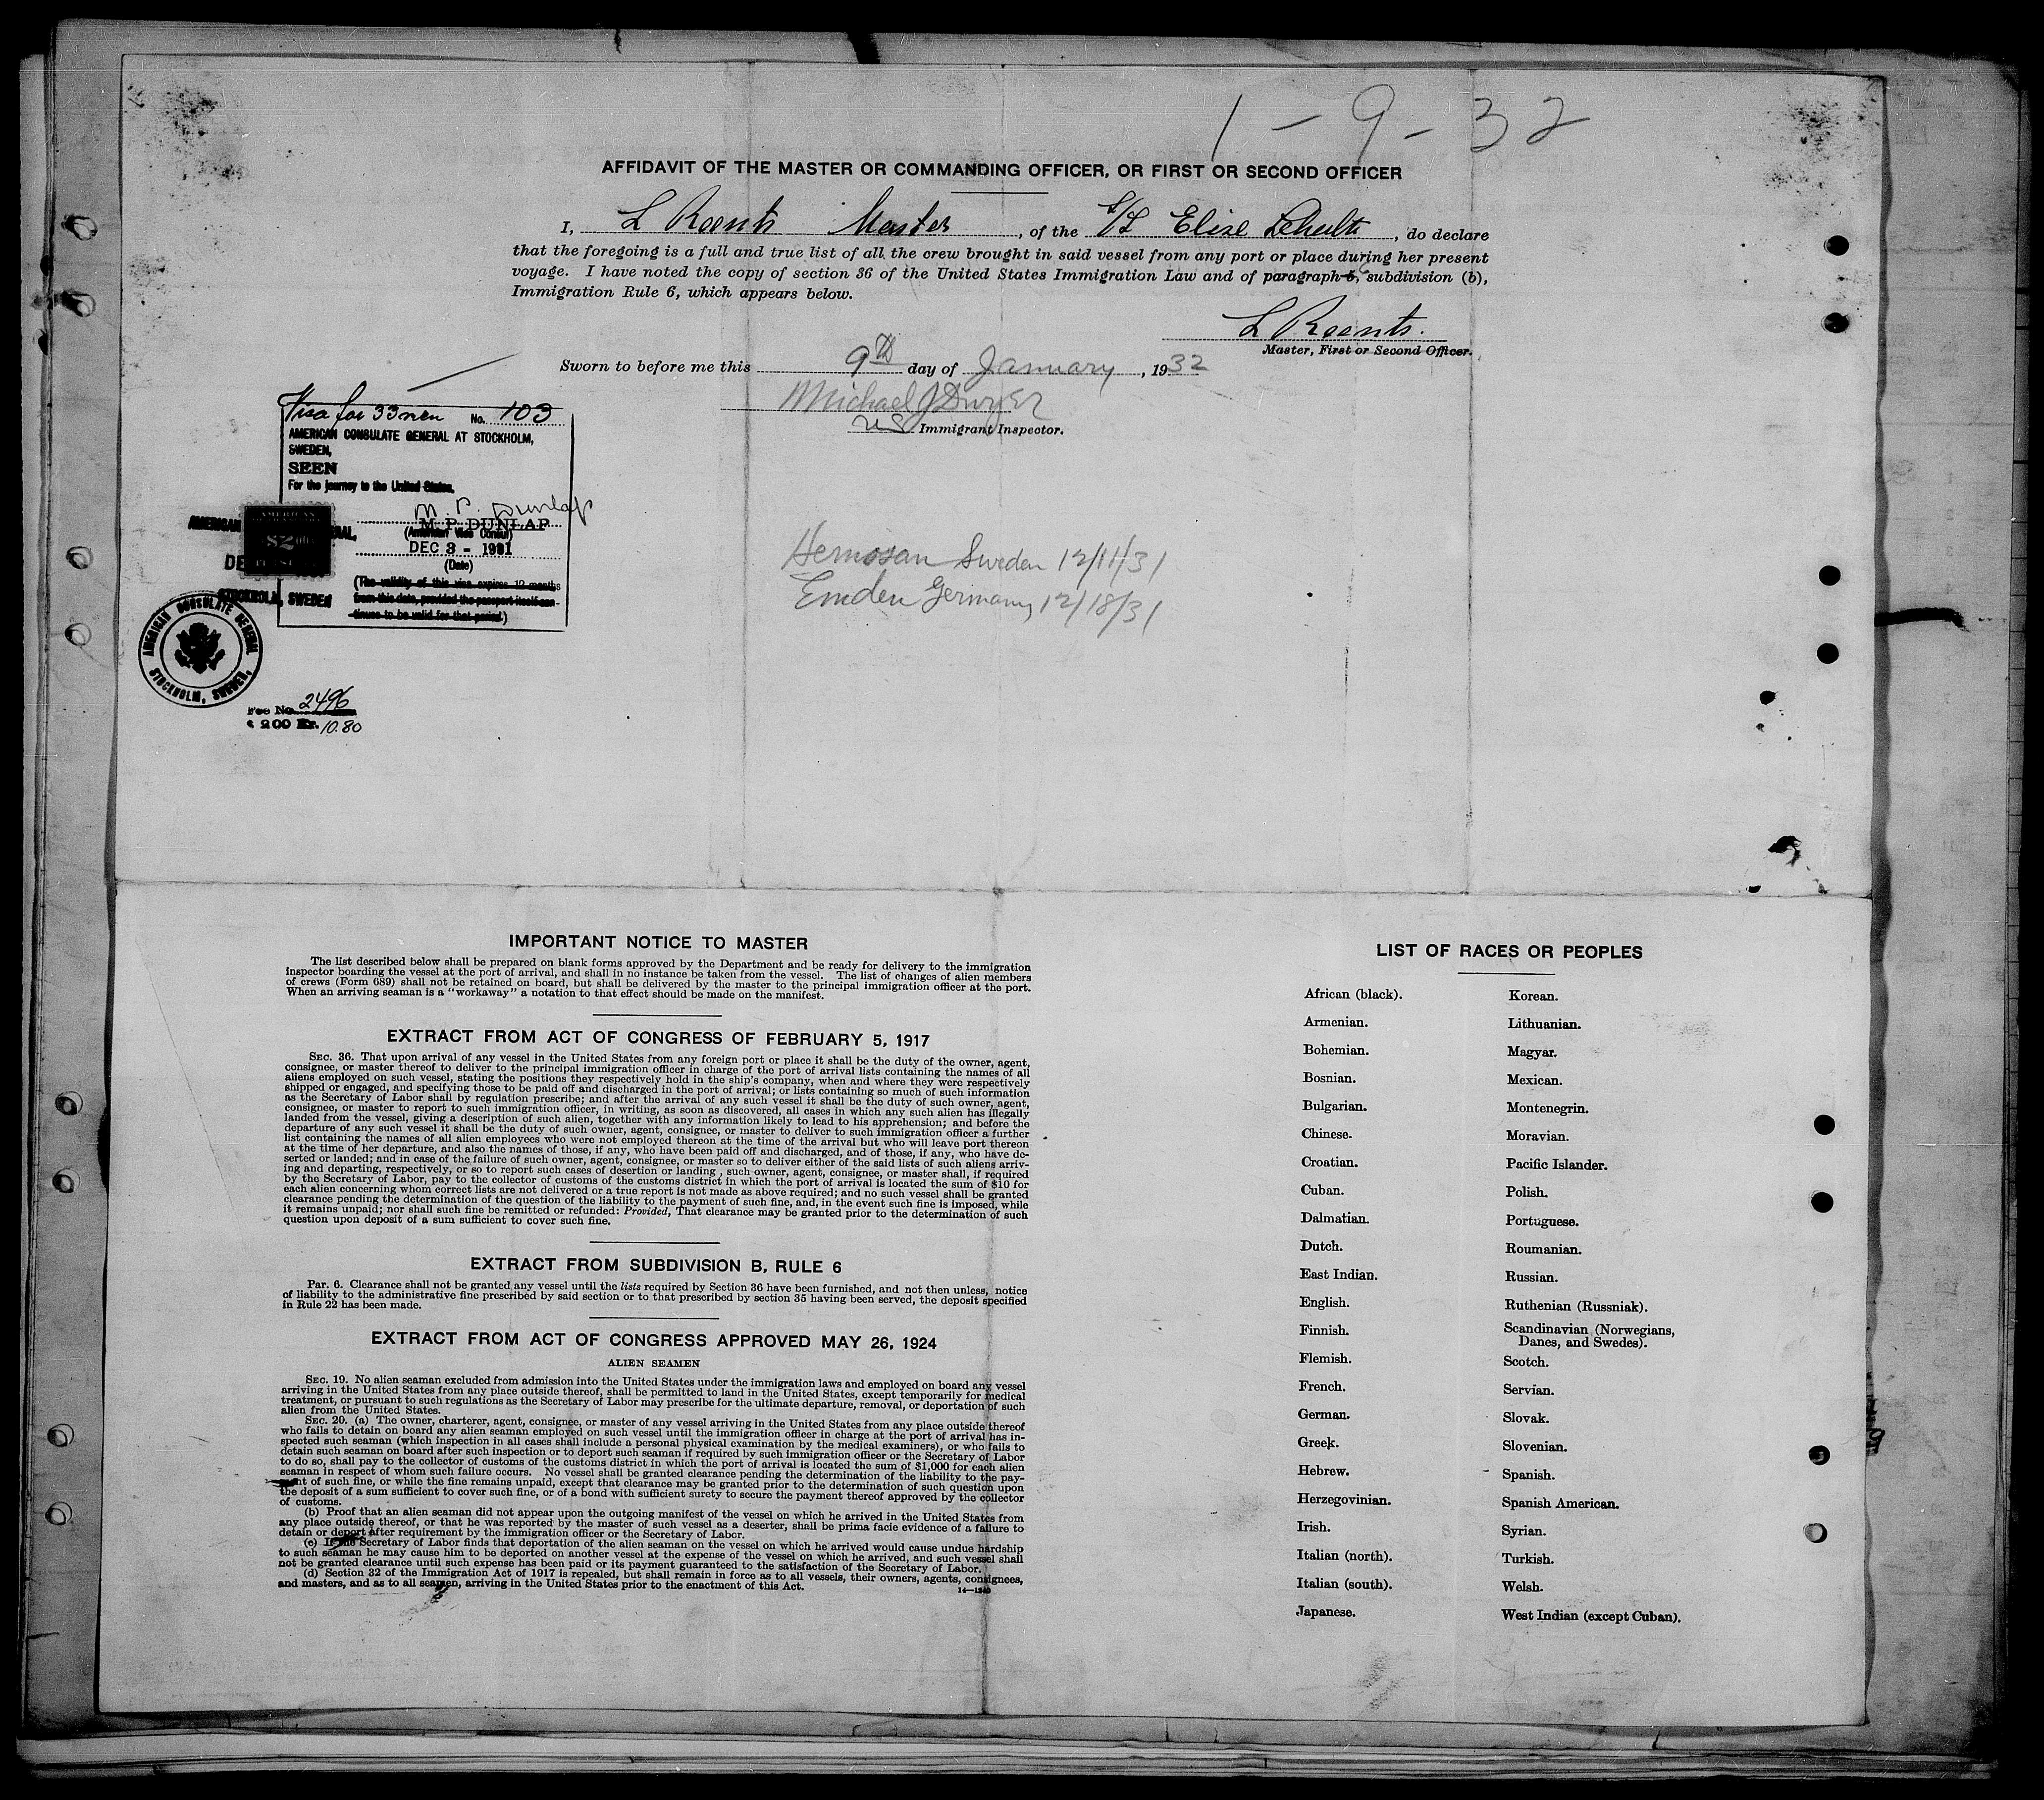 1-9-32
AFFIDAVIT OF THE MASTER OR COMMANDING OFFICER, OR FIRST OR SECOND OFFICER
I, L Roents Master, of the S/S Elise Schulte, do declare
that the foregoing is a full and true list of all the crew brought in said vessel from any port or place during her present
voyage. I have noted the copy of section 36 of the United States Immigration Law and of paragraph 5, subdivision (b),
Immigration Rule 6, which appears below.
L Roents.
Master, First or Second Officer.
Sworn to before me this 9th day of January, 1932
Michael J Dwyer
US Immigrant Inspector.
Visa for 33 men No. 103
AMERICAN CONSULATE GENERAL AT STOCKHOLM,
SWEDEN,
SEEN
For the journey to the United States.
M. P. Dunlap
M. P. DUNLAP
(American Vice Consul)
DEC 3 - 1931
(Date)
(The validity of this visa expires 12 months
from this date, provided the passport itself con-
tinues to be valid for that period.)
AMERICAN
$2
STOCKHOLM, SWEDEN
AMERICAN CONSULATE GENERAL
STOCKHOLM, SWEDEN.
Fee No. 2496
$ 2.00 Kr. 10.80
Hernosan Sweden 12/11/31
Emden Germany 12/18/31
IMPORTANT NOTICE TO MASTER
The list described below shall be prepared on blank forms approved by the Department and be ready for delivery to the immigration
inspector boarding the vessel at the port of arrival, and shall in no instance be taken from the vessel. The list of changes of alien members
of crews (Form 689) shall not be retained on board, but shall be delivered by the master to the principal immigration officer at the port.
When an arriving seaman is a "workaway" a notation to that effect should be made on the manifest.
EXTRACT FROM ACT OF CONGRESS OF FEBRUARY 5, 1917
SEC. 36. That upon arrival of any vessel in the United States from any foreign port or place it shall be the duty of the owner, agent,
consignee, or master thereof to deliver to the principal immigration officer in charge of the port of arrival lists containing the names of all
aliens employed on such vessel, stating the positions they respectively hold in the ship's company, when and where they were respectively
shipped or engaged, and specifying those to be paid off and discharged in the port of arrival; or lists containing so much of such information
as the Secretary of Labor shall by regulation prescribe; and after the arrival of any such vessel it shall be the duty of such owner, agent,
consignee, or master to report to such immigration officer, in writing, as soon as discovered, all cases in which any such alien has illegally
landed from the vessel, giving a description of such alien, together with any information likely to lead to his apprehension; and before the
departure of any such vessel it shall be the duty of such owner, agent, consignee, or master to deliver to such immigration officer a further
list containing the names of all alien employees who were not employed thereon at the time of the arrival but who will leave port thereon
at the time of her departure, and also the names of those, if any, who have been paid off and discharged, and of those, if any, who have de-
serted or landed; and in case of the failure of such owner, agent, consignee, or master so to deliver either of the said lists of such aliens arriv-
ing and departing, respectively, or so to report such cases of desertion or landing , such owner, agent, consignee, or master shall, if required
by the Secretary of Labor, pay to the collector of customs of the customs district in which the port of arrival is located the sum of $10 for
each alien concerning whom correct lists are not delivered or a true report is not made as above required; and no such vessel shall be granted
clearance pending the determination of the question of the liability to the payment of such fine, and, in the event such fine is imposed, while
it remains unpaid; nor shall such fine be remitted or refunded: Provided, That clearance may be granted prior to the determination of such
question upon deposit of a sum sufficient to cover such fine.
EXTRACT FROM SUBDIVISION B, RULE 6
Par. 6. Clearance shall not be granted any vessel until the lists required by Section 36 have been furnished, and not then unless, notice
of liability to the administrative fine prescribed by said section or to that prescribed by section 35 having been served, the deposit specified
in Rule 22 has been made.
EXTRACT FROM ACT OF CONGRESS APPROVED MAY 26, 1924
ALIEN SEAMEN
SEC. 19. No alien seaman excluded from admission into the United States under the immigration laws and employed on board any vessel
arriving in the United States from any place outside thereof, shall be permitted to land in the United States, except temporarily for medical
treatment, or pursuant to such regulations as the Secretary of Labor may prescribe for the ultimate departure, removal, or deportation of such
alien from the United States.
SEC. 20. (a) The owner, charterer, agent, consignee, or master of any vessel arriving in the United States from any place outside thereof
who fails to detain on board any alien seaman employed on such vessel until the immigration officer in charge at the port of arrival has in-
spected such seaman (which inspection in all cases shall include a personal physical examination by the medical examiners), or who fails to
detain such seaman on board after such inspection or to deport such seaman if required by such immigration officer or the Secretary of Labor
to do so, shall pay to the collector of customs of the customs district in which the port of arrival is located the sum of $1,000 for each alien
seaman in respect of whom such failure occurs. No vessel shall be granted clearance pending the determination of the liability to the pay-
ment of such fine, or while the fine remains unpaid, except that clearance may be granted prior to the determination of such question upon
the deposit of a sum sufficient to cover such fine, or of a bond with sufficient surety to secure the payment thereof approved by the collector
of customs.
(b) Proof that an alien seaman did not appear upon the outgoing manifest of the vessel on which he arrived in the United States from
any place outside thereof, or that he was reported by the master of such vessel as a deserter, shall be prima facie evidence of a failure to
detain or deport after requirement by the immigration officer or the Secretary of Labor.
(c) If the Secretary of Labor finds that deportation of the alien seaman on the vessel on which he arrived would cause undue hardship
to such seaman he may cause him to be deported on another vessel at the expense of the vessel on which he arrived, and such vessel shall
not be granted clearance until such expense has been paid or its payment guaranteed to the satisfaction of the Secretary of Labor.
(d) Section 32 of the Immigration Act of 1917 is repealed, but shall remain in force as to all vessels, their owners, agents, consignees,
and masters, and as to all seamen, arriving in the United States prior to the enactment of this Act.
LIST OF RACES OR PEOPLES
African (black).
Armenian.
Bohemian.
Bosnian.
Bulgarian.
Chinese.
Croatian.
Cuban.
Dalmatian.
Dutch.
East Indian.
English.
Finnish.
Flemish.
French.
German.
Greek.
Hebrew.
Herzegovinian.
Irish.
Italian (north).
Italian (south).
Japanese.
Korean.
Lithuanian.
Magyar.
Mexican.
Montenegrin.
Moravian.
Pacific Islander.
Polish.
Portuguese.
Roumanian.
Russian.
Ruthenian (Russniak).
Scandinavian (Norwegians,
Danes, and Swedes).
Scotch.
Servian.
Slovak.
Slovenian.
Spanish.
Spanish American.
Syrian.
Turkish.
Welsh.
West Indian (except Cuban).